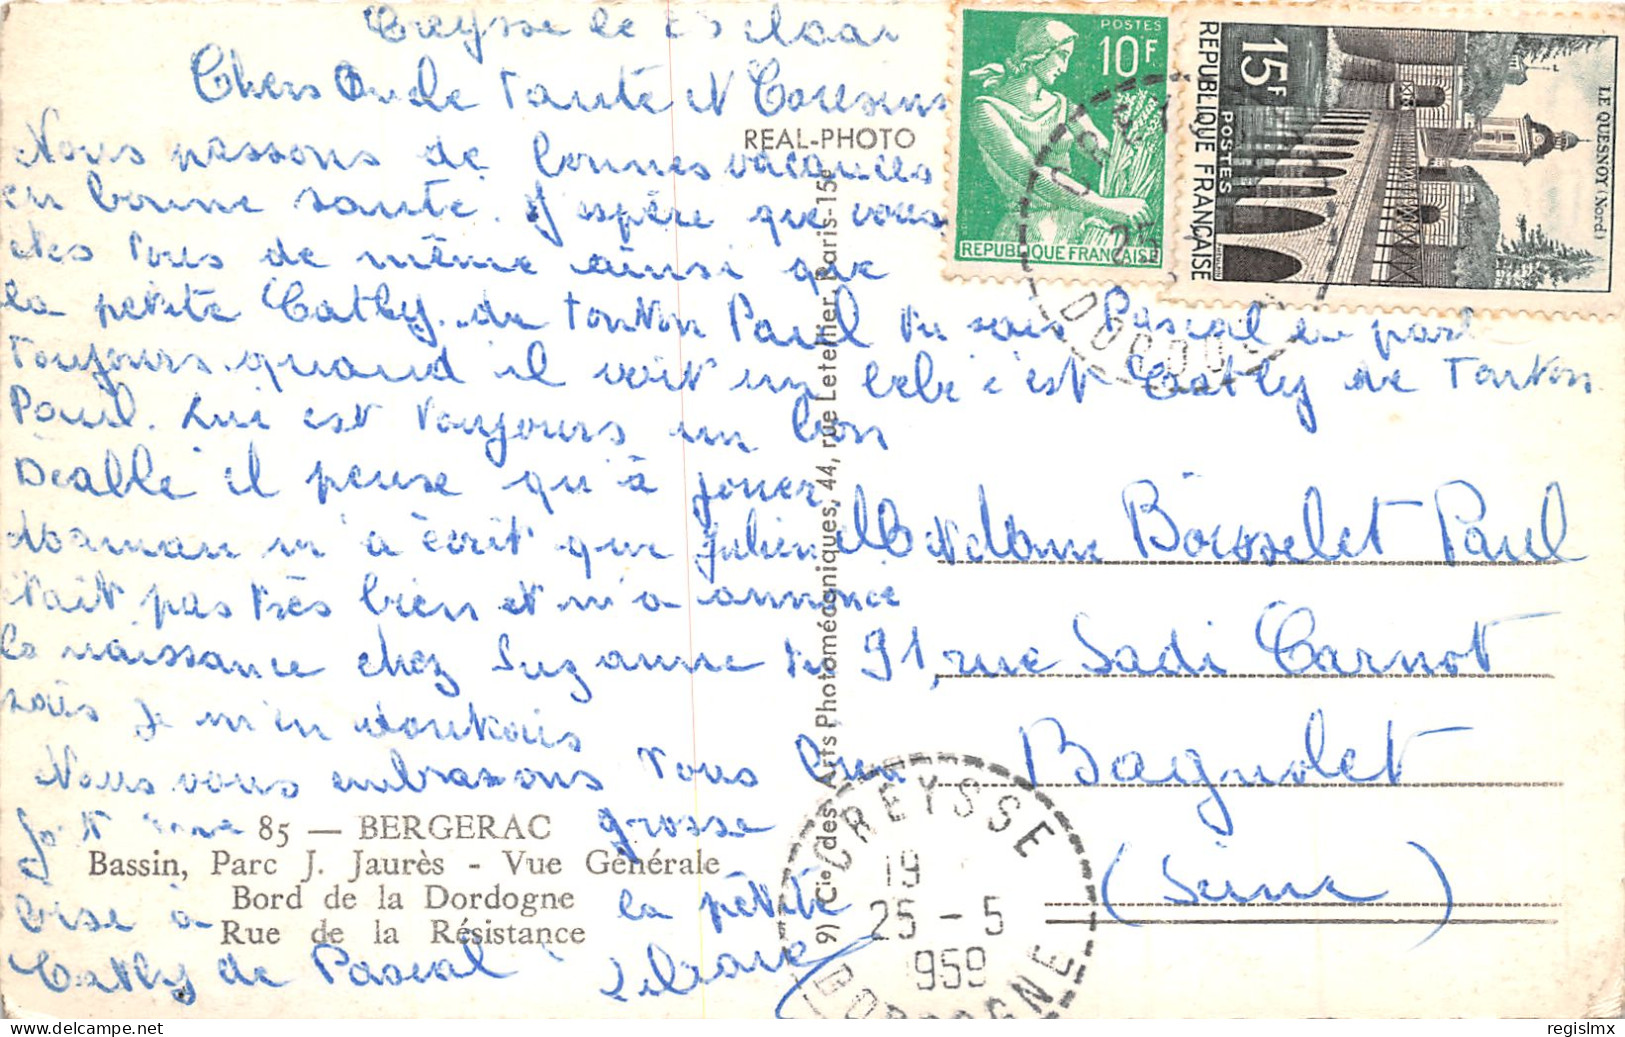 Creysse le
Chers Oncle Tante et Cousins
Nous passons de bonnes vacances
en bonne santé. J'espère que vous
êtes tous de même ainsi que
la petite Cathy de tonton Paul tu sais Pascal en parle
toujours quand il voit un bébé c'est Cathy de Tonton
Paul. Lui est toujours un bon
Diable il pense qu'à jouer
Maman m'a écrit que Julien
était pas très bien et m'a annoncé
la naissance chez Suzanne tu
sais je m'en doutais
Nous vous embrassons tous bien
fort une grosse
bise à la petite
Cathy de Pascal
REAL-PHOTO
9) Cie des Arts Photomécaniques, 44, rue Letellier, Paris-15e
85 — BERGERAC
Bassin, Parc J. Jaurès - Vue Générale
Bord de la Dordogne
Rue de la Résistance
POSTES
10F
REPUBLIQUE FRANÇAISE
15F
POSTES
REPUBLIQUE FRANÇAISE
LE QUESNOY (Nord)
25
DORDOGNE
Madame Boisselet Paul
91, rue Sadi Carnot
Bagnolet
(Seine)
CREYSSE
19
25 - 5
1959
DORDOGNE
regislmx